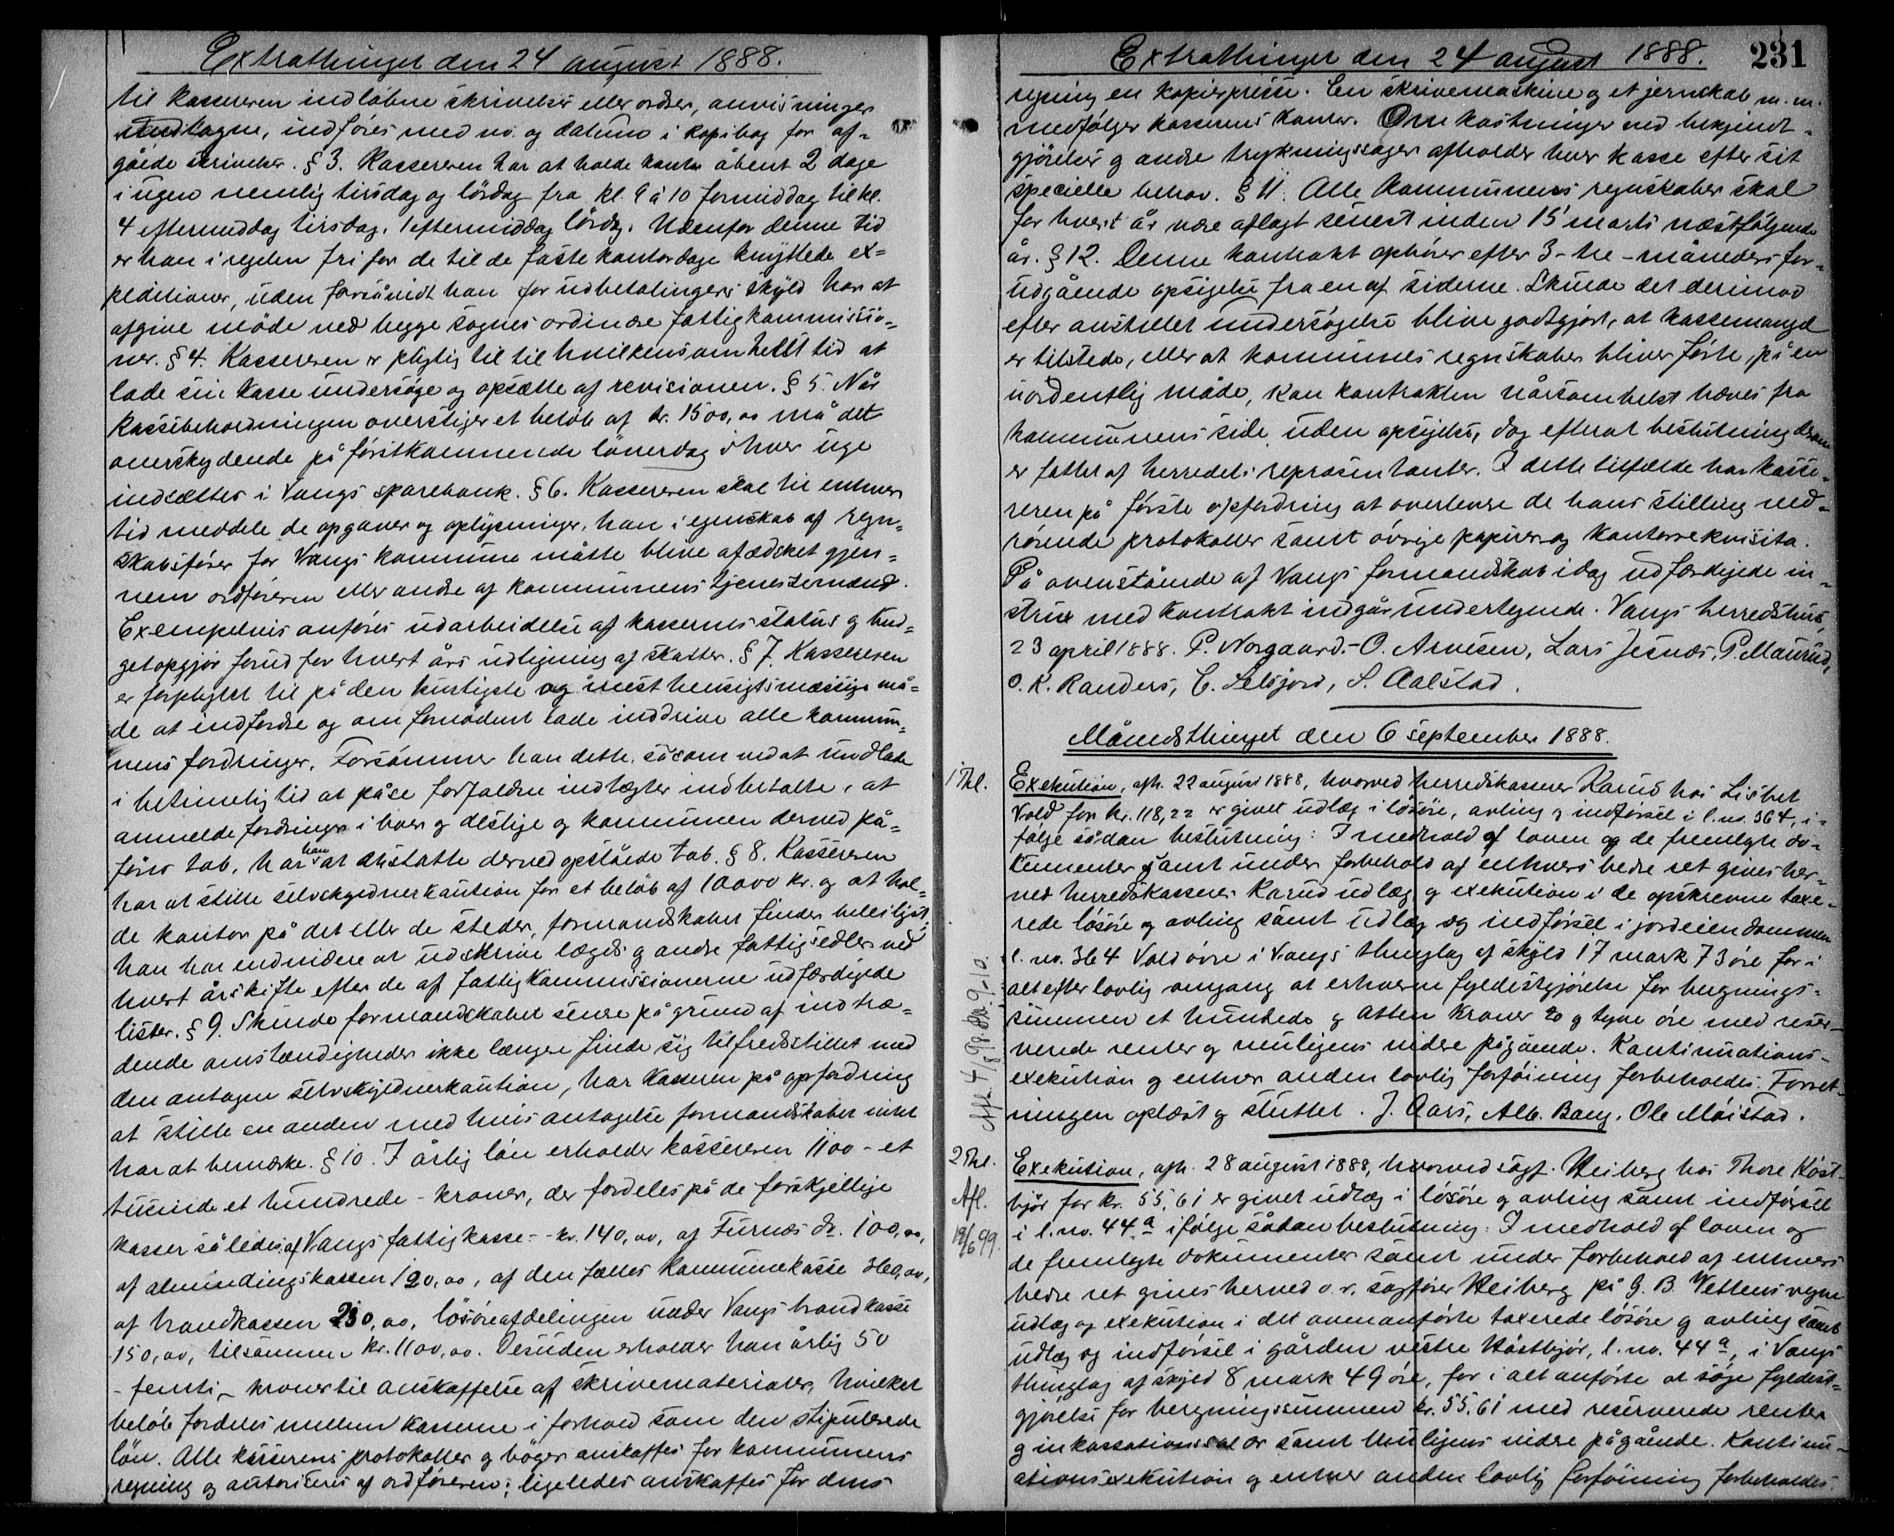 Extrathinget den 24 august 1888.
til kassereren indløbne skrivelser eller ordrer, anvisninger
undtagne, indføres med no. og datum i kopibog for af-
gåede skrivelser. § 3. Kassereren har at holde kontor åbent 2 dage
i ugen nemlig tirsdag og lördag fra kl. 9 à 10 formiddag til kl.
4 eftermiddag tirsdag, 1 eftermiddag lördag. Udenfor denne tid
er han i regelen fri for de til de faste kontordage knyttede ex-
peditioner, uden forsåvidt han for udbetalingers skyld har at
afgive möde ved begge sognes ordinære fattigkommissio-
ner. § 4. Kassereren er pligtig til til hvilkensomhelst tid at
lade sin kasse undersöge og opsætte af revisionen. § 5. Når
kassebeholdningen overstiger et belöb af kr. 1500,00 må det
overskydende på förstkommende löverdag i hver uge
indsættes i Vangs sparebank. § 6. Kassereren skal til enhver
tid meddele de opgaver og oplysninger, han i egenskab af regn-
skabsförer for Vangs kommune måtte blive afædsket gjen-
nem ordföreren eller andre af kommunens tjenestemænd.
Exempelvis anföres udarbeidelse af kassernes status og bud-
getopgjör forud for hvert års udligning af skatter. § 7. Kassereren
er forpligtet til på den hurtigste og mest hensigtsmæssige må-
de at indfordre og om fornödent lade inddrive alle kommu-
nens fordringer. Forsömmer han dette, såsom ved at undlade
i betimelig tid at påse forfaldne indtægter indbetalte, at
anmelde fordringer i boer og deslige og kommunen derved på-
föres tab, har han at erstatte derved opståede tab. § 8. Kassereren
har at stille selvskyldnerkaution for et belöb af 10000 kr. og at hol-
de kontor på det eller de steder, formandskabet finder beleiligst,
han har endvidere at udskrive lægds og andre fattigsedler ved
hvert årskifte efter de af fattigkommissionerne udfærdigede
lister. § 9. Skulde formandskabet senere på grund af indtræ-
dende omstændigheder ikke længere finde sig tilfredsstillet med
den antagne selvskyldnerkaution, har kasseren på opfordring
at stille en anden mod hvis antagelse formandskabet intet
har at bemærke. § 10. I årlig lön erholder kassereren 1100 - et
tusinde et hundrede - kroner, der fordeles på de forskjellige
kasser således af Vangs fattigkasse - kr. 140,00, af Furnæs do. 100,00,
af almindingskassen 120,00, af den fælles kommunekasse 360,00,
af brandkassen 230,00, lösöreafdelingen under Vangs brandkasse
150,00, tilsammen kr. 1100,00. Desuden erholder han årlig 50
- femti - kroner til anskaffelse af skrivematerialer, hvilket
belöb fordeles mellem kasserne i forhold som den stipulerede
lön. Alle kassererens protokoller og böger anskaffes for kommunens
regning og autoriseres af ordföreren; ligeledes anskaffes for dens
Extrathinget den 24 august 1888.
231
regning en kopierpresse. En skrivemaskine og et jernskab m.m.
medfølger kassererens kontor. Omkostninger ved bekjendt-
gjörelser og andre trykningssager afholder hver kasse efter sit
specielle behov. § 11. Alle kommunens regnskaber skal
for hvert år være aflagt senest inden 15 marts næstfölgende
år. § 12. Denne kontrakt ophörer efter 3 - tre - måneders for-
udgående opsigelse fra en af siderne. Skulde det derimod
efter anstillet undersögelse blive godtgjort, at kassemangel
er tilstede, eller at kommunens regnskaber bliver förte på en
uordentlig måde, kan kontrakten nårsomhelst hæves fra
kommunens side uden opsigelse, dog efterat beslutning derom
er fattet af herredets repræsentanter. I dette tilfælde har kasse-
reren på förste opfordring at overlevere de hans stilling ved-
rörende protokoller samt övrige papirer og kontorrekvisita.
På ovenstående af Vangs formandskab idag udfærdigede in-
strux med kontrakt indgår undertegnede. Vangs herredshus,
23 april 1888. P. Norgaard. - O. Arnesen, Lars Jesnæs, P. Maurud,
O. K. Randers, E. Selsjord, S. Aalstad.
Månedsthinget den 6 september 1888.
1 Thl.
Exekution, afh. 22 august 1888, hvorved herredskasserer Karud hos Lisbet
Vold for kr. 118,22 er givet udlæg i lösöre, avling og indførsel i l. no. 364, i-
fölge sådan beslutning: I medhold af loven og de fremlagte do-
kumenter samt under forbehold af enhvers bedre ret gives her-
ved herredskasserer Karud udlæg og exekution i de opskrevne taxe-
rede lösöre og avling samt udlæg og indförsel i jordeiendommen
l. no. 364 Voldövre i Vangs thinglag af skyld 17 mark 73 öre for i
alt efter lovlig omgang at erhverve fyldestgjörelse for bergnings-
summen et hundrede og atten kroner 20 og tyve öre med reser-
verede renter og muligens videre pågående. Kontinuations-
exekution og enhver anden lovlig forföining forbeholdes. Forret-
ningen oplæst og sluttet. J. Aars, Alb. Bang, Ole Möistad.
2 Thl.
Afl.
19/6 99.
Exekution, afh. 28 august 1888, hvorved sagf. Heiberg hos Thore Höst-
björ for kr. 55,61 er givet udlæg i lösöre og avling samt indförsel
i l. no. 44a ifölge sådan beslutning: I medhold af loven og
de fremlagte dokumenter samt under forbehold af enhvers
bedre ret gives herved o.r. sagförer Heiberg på G. B. Vettens vegne
udlæg og exekution i det ovenanförte taxerede lösöre og avling samt
udlæg og indförsel i gården vestre Höstbjör, l. no. 44a, i Vangs
thinglag af skyld 8 mark 49 öre, for i alt anförte at söge fyldest-
gjörelse for bergningssummen kr. 55,61 med reserverede renter
og inkassationssalær samt muligens videre pågående. Kontinu-
ationsexekution og enhver anden lovlig forföining forbeholdes.